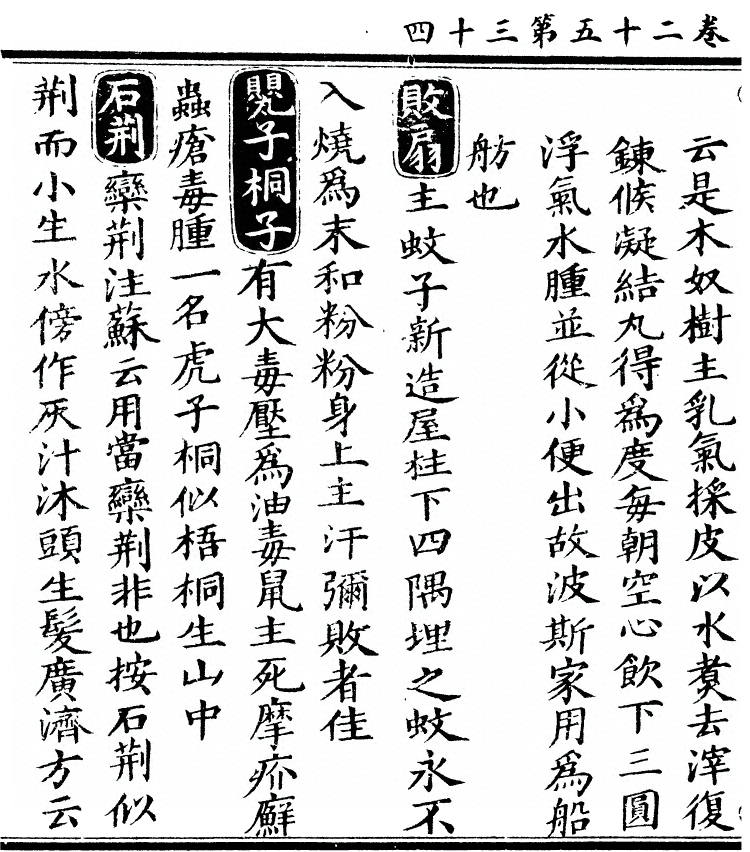 卷二十五第三十四
云是木奴樹主乳氣採皮以水煑去滓復
鍊候凝結丸得爲度每朝空心飲下三圓
浮氣水腫並從小便出故波斯家用爲船
舫也
敗扇主蚊子新造屋柱下四隅埋之蚊永不
入燒爲末和粉粉身上主汗彌敗者佳
甖子桐子有大毒壓爲油毒鼠主死摩疥癬
蟲瘡毒腫一名虎子桐似梧桐生山中
石荆欒荆注蘇云用當欒荆非也按石荆似
荆而小生水傍作灰汁沐頭生髮廣濟方云